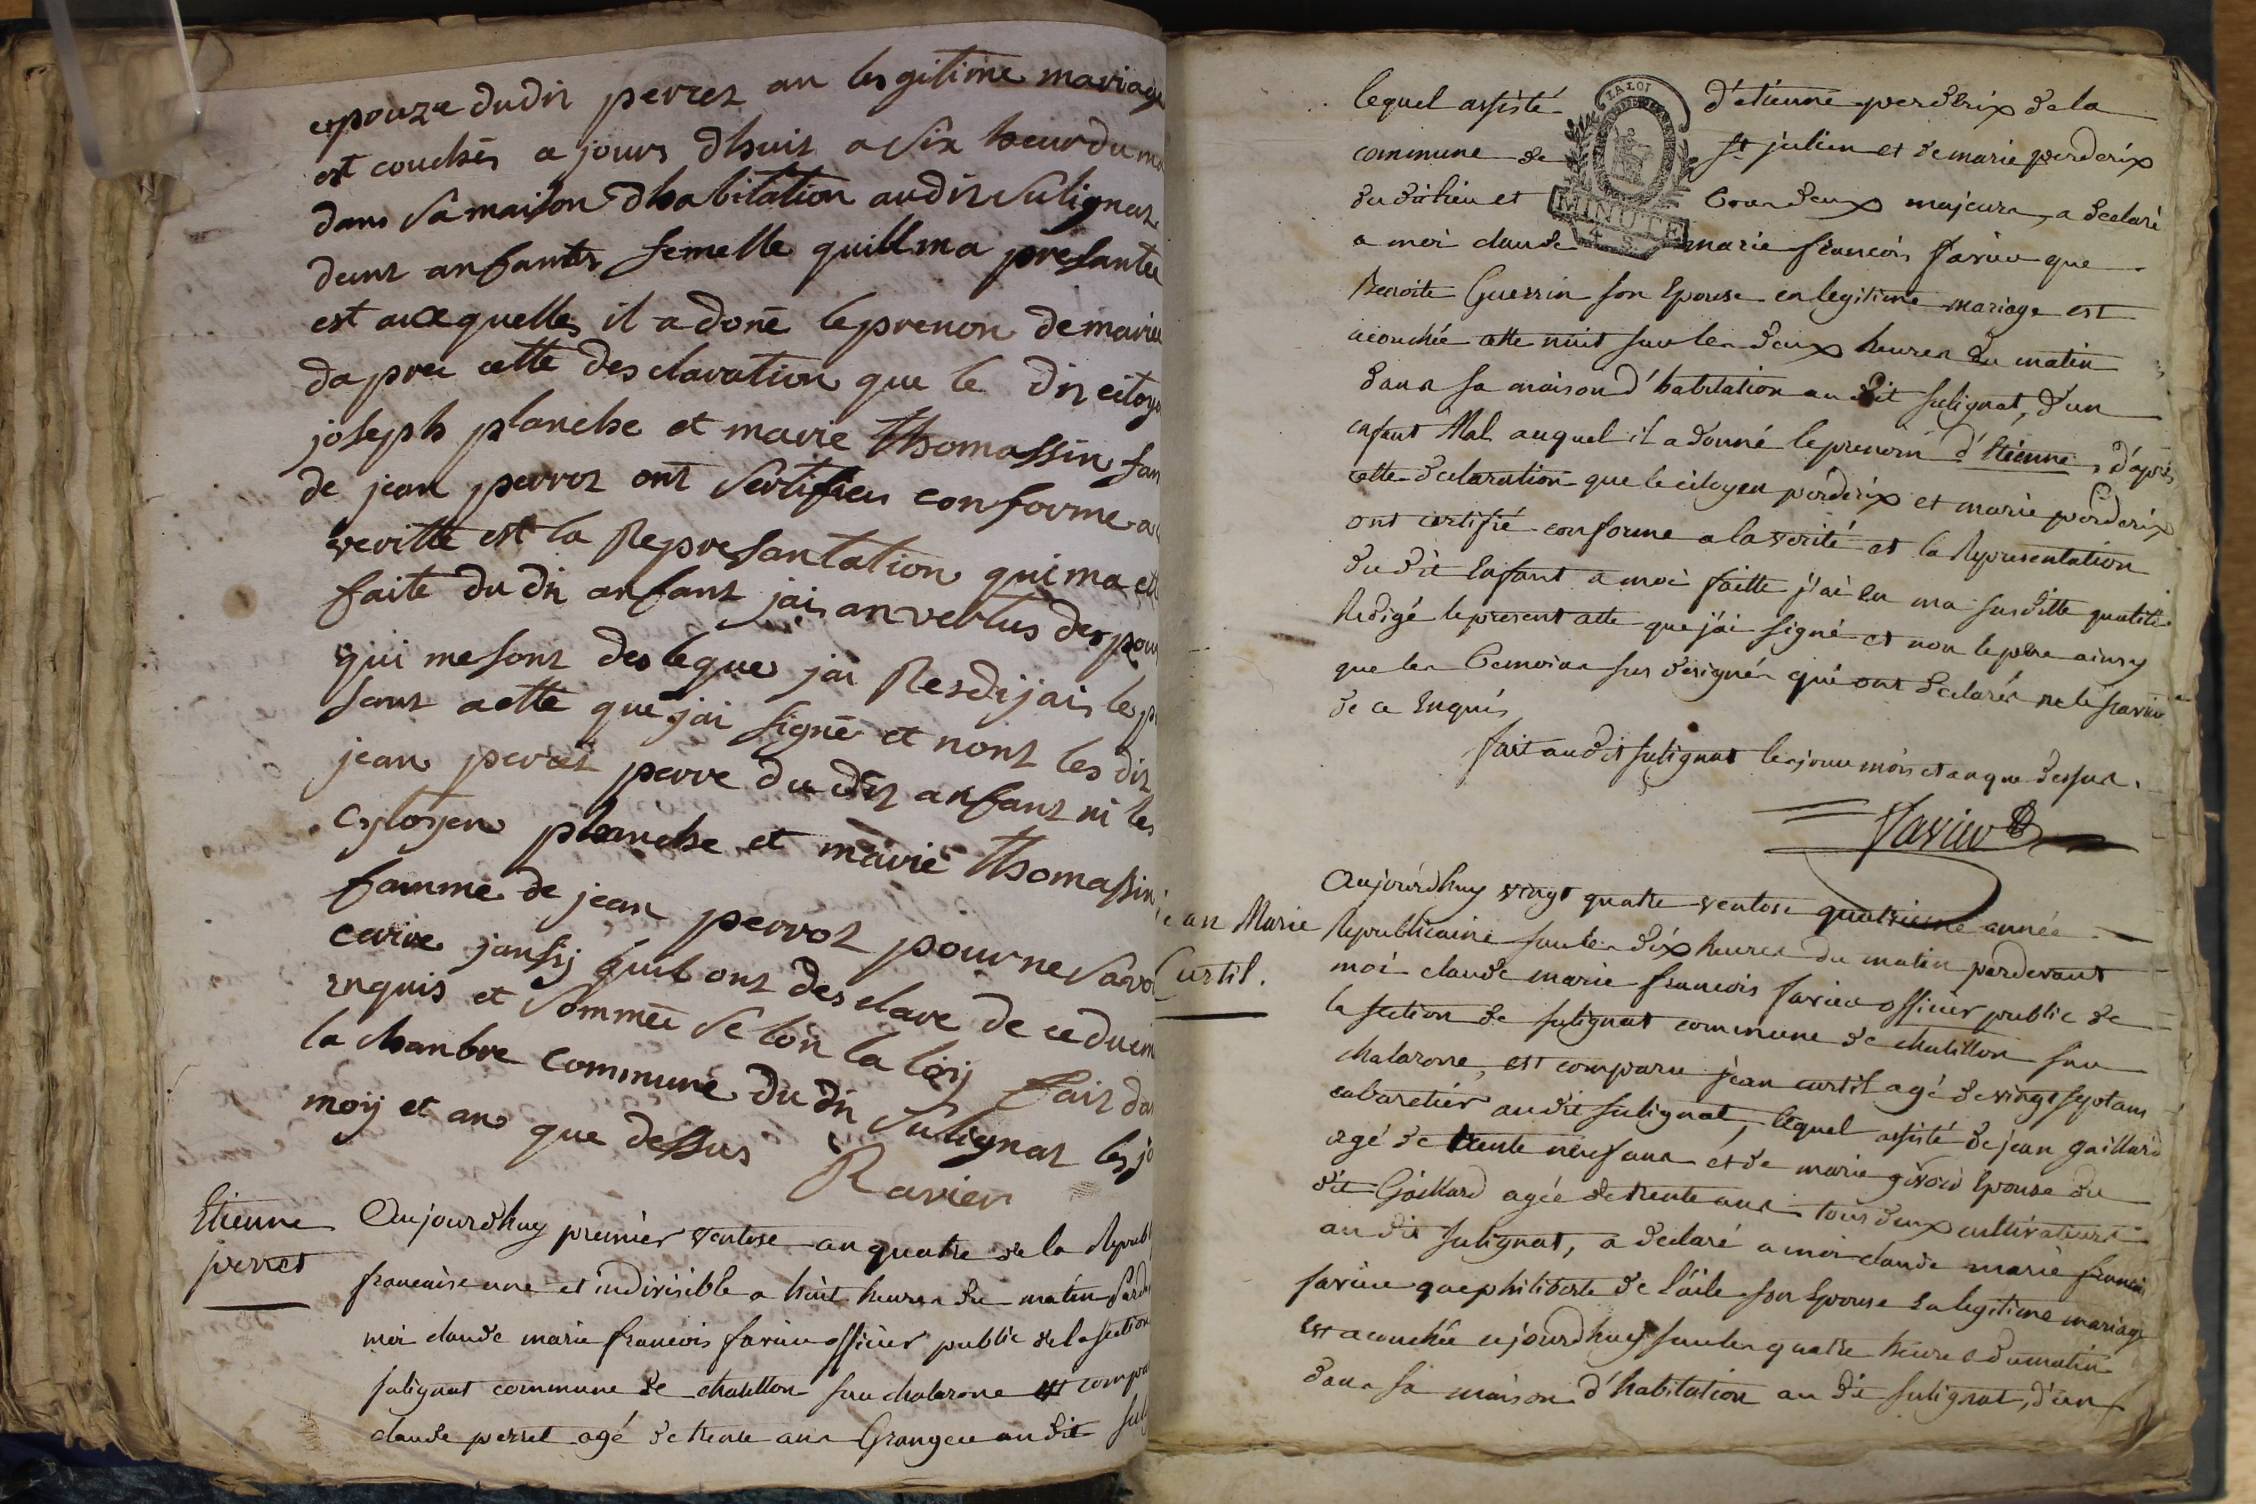 epouze dudit perret an les gitime mariage
est couchés a jours dhuit a six heur du
dans sa maison dhabitation audit Sulignat
dunt anfantes femelle quill ma presantee
est auxquelles il a doné le prenon de marie
da prei cette des claration que le dit citoy
joseph planche et marie thomassin fam
de jean perrot ont Sertifies conforme a
veritte est la Represantation qui ma et
faite du dit anfant jai an vertus des pou
qui me sont des legue jai Resdijai le p
sant actte que jai signé et nont les dit
jean perret perre du dit anfant ni les
cytoyen planche et marie thomassin
famme de jean perrot pour ne savo
ecrire jansij quil ont des clare de ce duem
enquis et sommeé Selon la loij fait da
la chanbre commune du dit Sulignat les jo
moij et an que dessus
Ravier
Etienne
perret
Aujourdhuy premier ventose an quatre de la Republ
francaise une et indivisible a huit heures du matin Pard
moi claude marie francois favier officier public de la section
sulignat commune de chatillon sur chalarone est compa
claude perret agé de trente ans Granger audit sul
lequel assisté d'etienne perdrix de la
commune de st julien et de marie perdrix
du dit lieu et tous deux majeurs, a declaré
a moi claude marie francois favier que
LA LOI
MINUTE
4. S.
Benoite Guerrin son Epouse en legitime mariage est
acouchée cette nuit sur les deux heures du matin
dans sa maison d'habitation au dit sulignat, d'un
enfant Mal auquel il a donné le prenom d'Etienne, d'après
cette declaration que le citoyen perdrix et marie perdrix
ont certifié conforme a la verité et la Representation
du dit Enfant a moi faitte j'ai En ma susditte qualité
Redigé le present atte que j'ai signé et non le pere ainsy
que les temoins sus designés qui ont declarés ne le savoir
de ce Enquis
fait au dit sulignat les jour mois et an que dessus.
Favier
Jean Marie
Curtil.
Aujourdhuy vingt quatre ventose quatrieme année
Republicaine sur les dix heures du matin pardevant
moi claude marie francois favier officier public de
la section de sulignat commune de chatillon sur
chalarone, est comparu jean curtil agé de vingt sept ans
cabaretier audit sulignat, lequel assisté de jean gaillard
agé de trente neuf ans et de marie girord Epouse du
dit Gaillard agée de trente ans tous deux cultivateurs
au dit sulignat, a declaré a moi claude marie francois
favier que philiberte de l'aile son Epouse En legitime mariage
est acouchée aujourdhuy sur les quatre heures du matin
dans sa maison d'habitation au dit sulignat, d'un